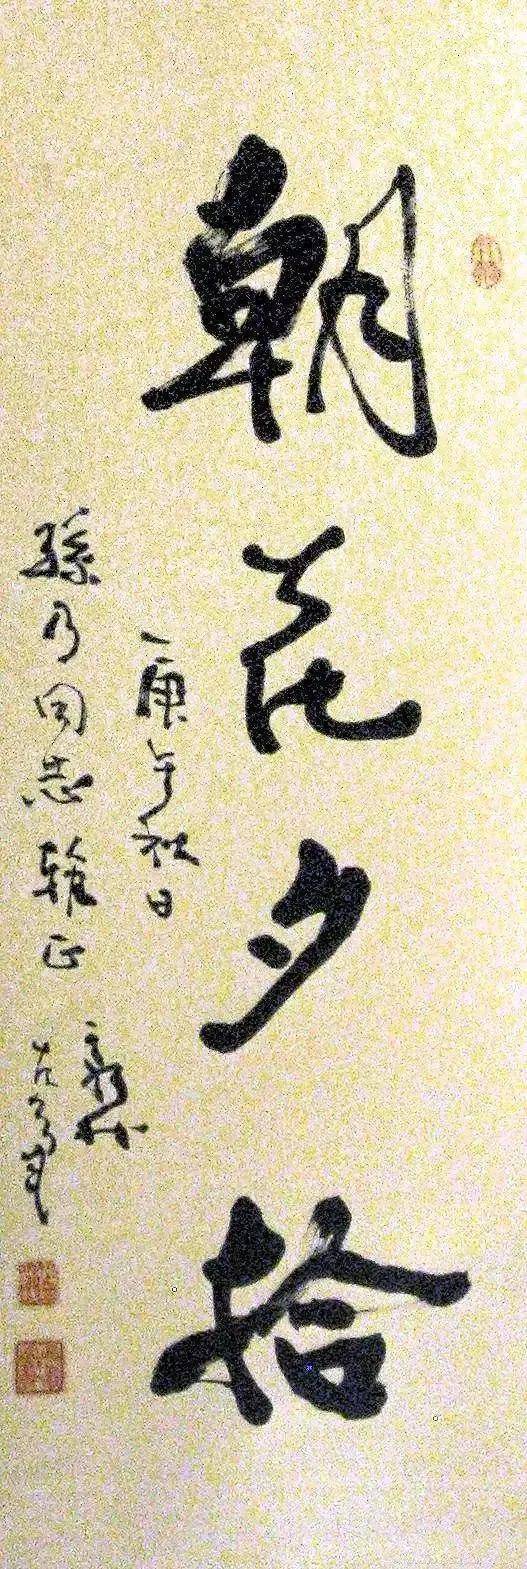 朝花夕拾
庚午秋日
孫乃同志雅正